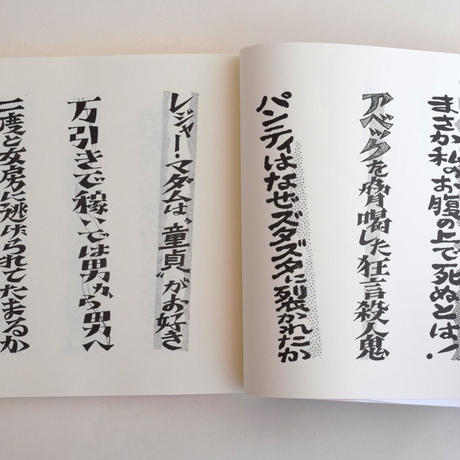 まさか私のお腹の上で死ぬとは!
アベックを脅喝した狂言殺人鬼
パンティはなぜズタズタに裂かれたか
レジャー・マダムは、“童貞”がお好き
万引きで稼いでは男から男へ
二度と女房に逃げられてたまるか